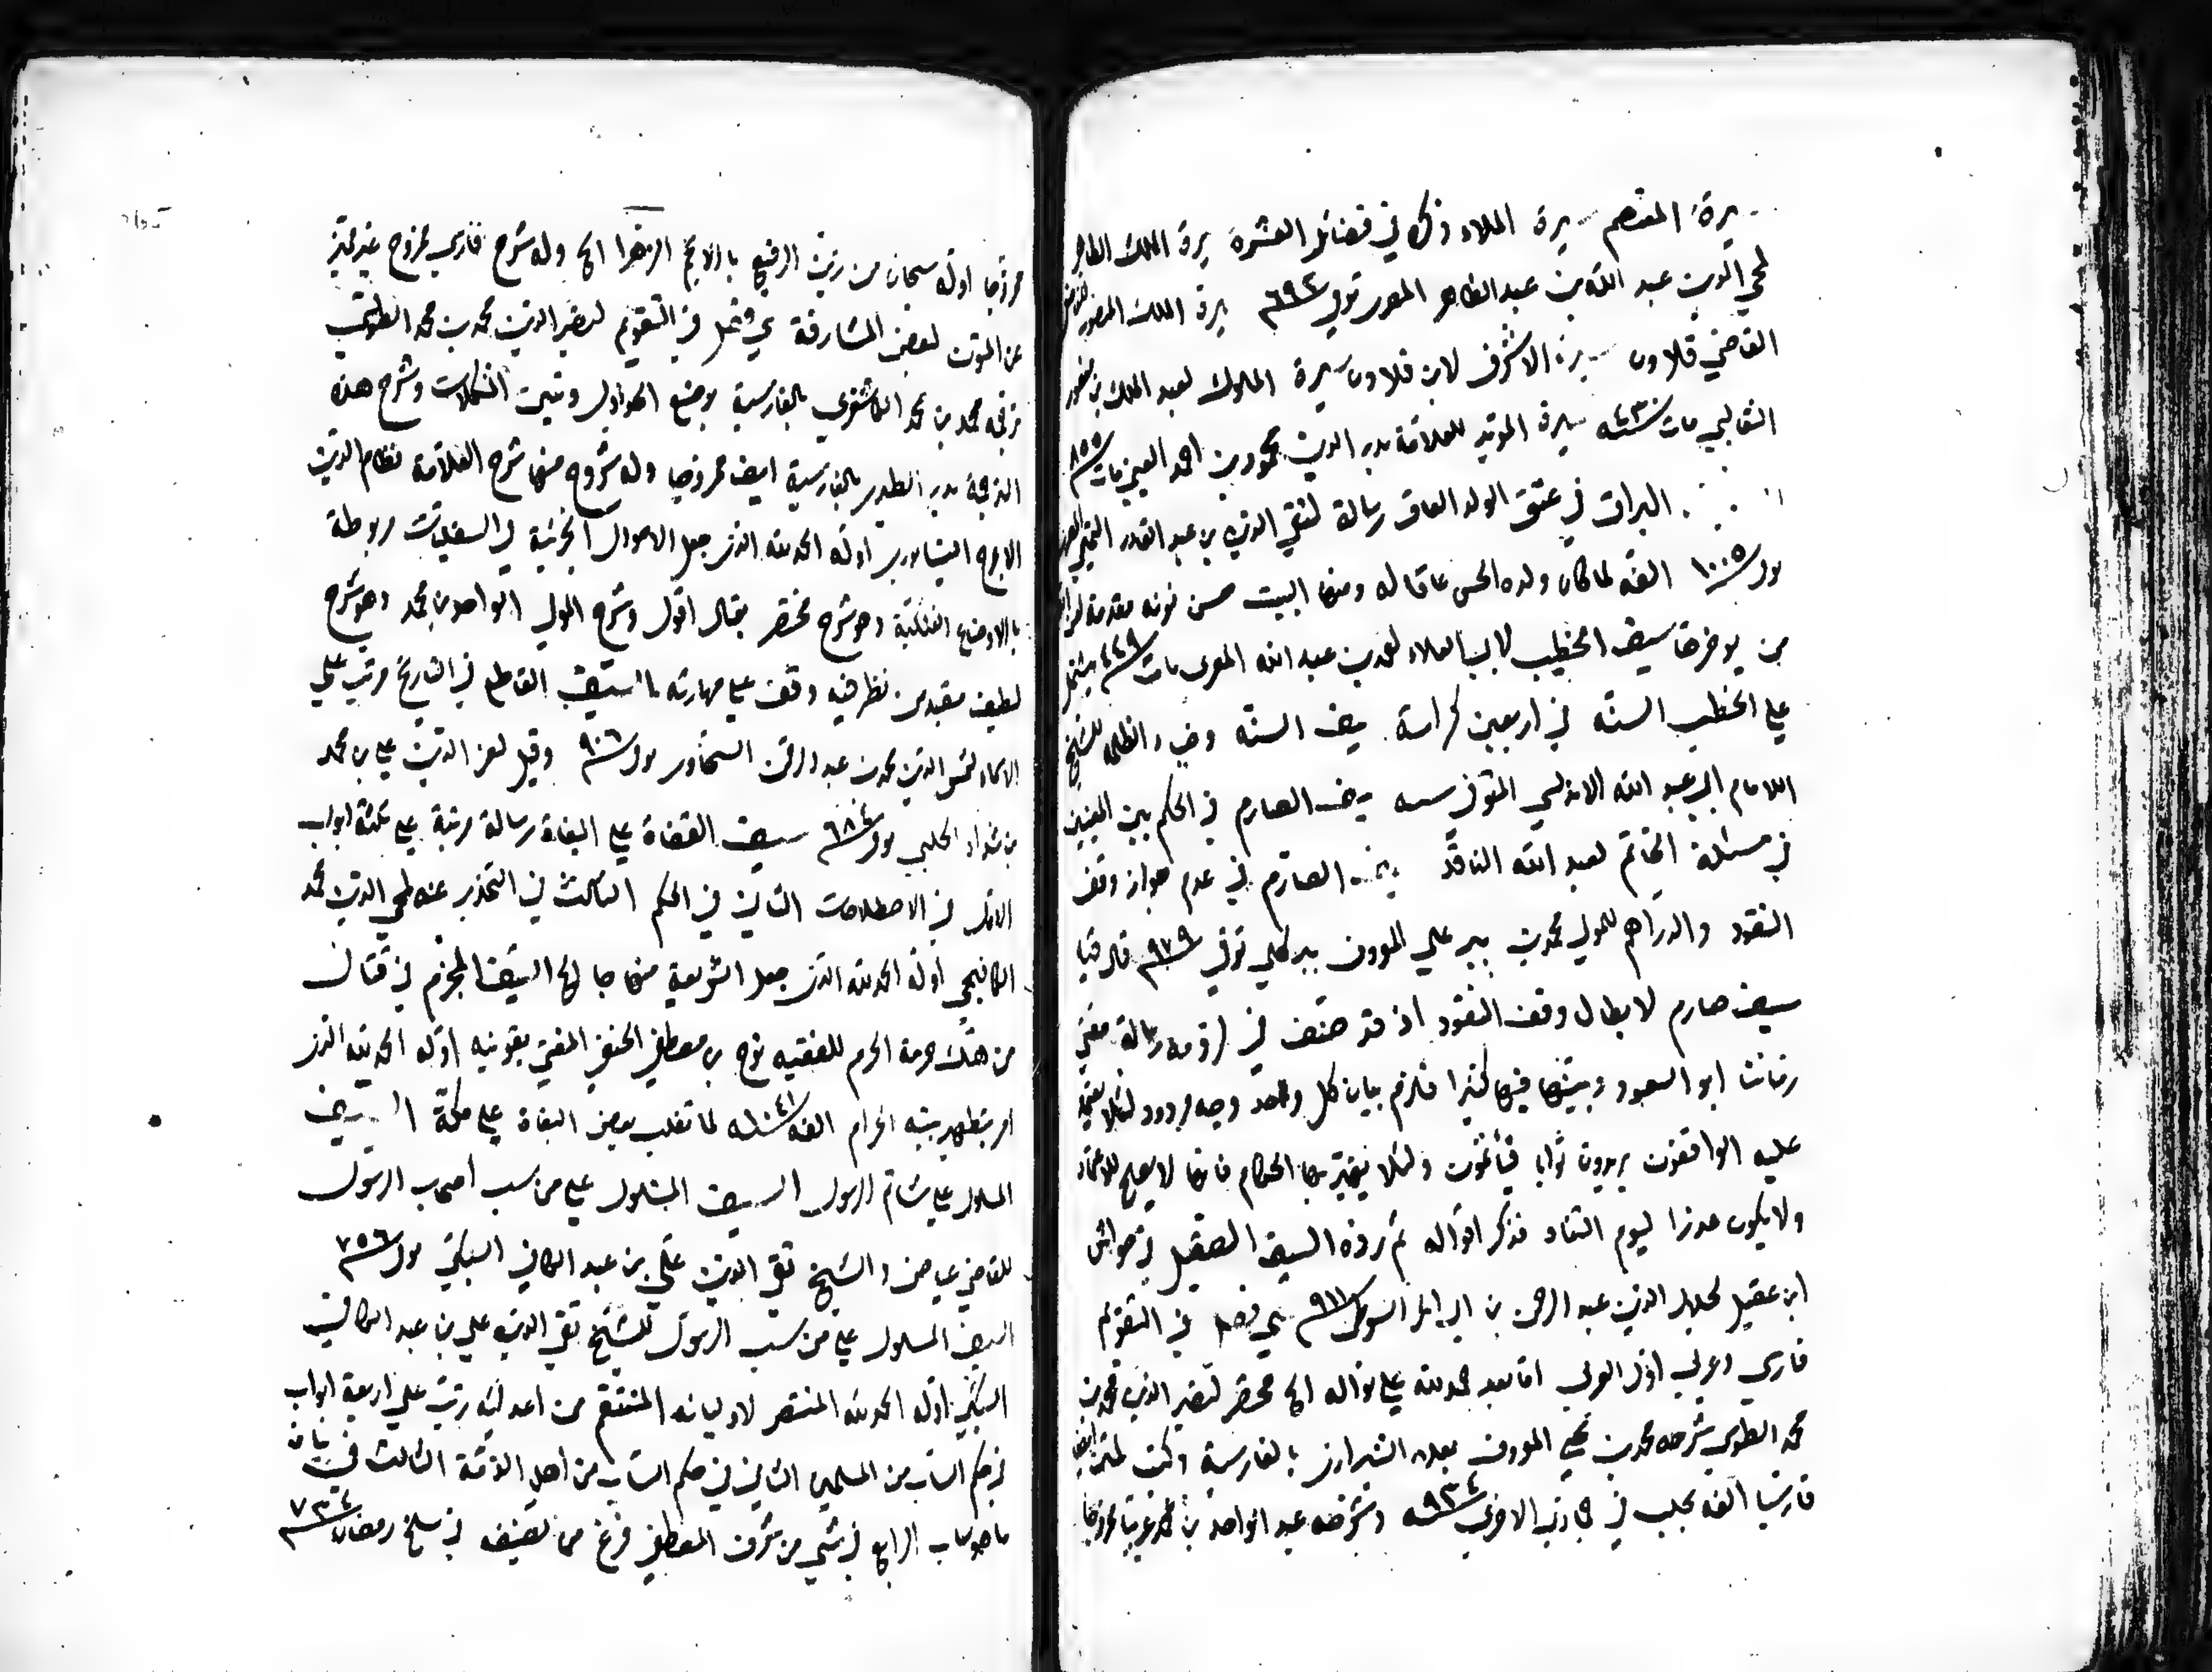 سيرة المعتصم سيرة الملاء ذكر في فضائل العشرة سيرة الملك الظاهر
لمحي الدين عبد الله بن عبد الظاهر المصري توفي ٦٩٢ سيرة الملك المنصور
القاضي قلاون سيرة الاشرف لابن قلاون سيرة الملوك لعبد الملك بن منصور
الثعالبي مات ٤٣٠ سنه سيرة المؤيد للعلامة بدر الدين محمود بن احمد العيني مات ٨٥٥
البراق في عتق الولد العاق رسالة لتقي الدين بن عبد القادر التميمي المصري
مول ١٠٠٥ الفه لما كان ولده الحسن عاقا له ومنها البيت حسن
من يوم فرضا سيف الخطيب لابي العلاء احمد بن عبد الله المعري مات ٤٤٩ يشتمل
على الخطب السنة في اربعين كراسة سيف السنة وضياء الظلمه للشيخ
الامام ابي عبد الله الاندلسي المتوفى سنه سيف الصارم في الحكم بين
في مسئلة الخاتم لعبد الله الناقد سيف الصارم في عدم جواز وقف
النقود والدراهم للمولى محمد بن بير علي المعروف ببركلي توفي ٩٧٩ قال فيا
سيف صارم لابطال وقف النقود اذ قد صنف في لزومه رسالة مفتي
زماننا ابو السعود وبينها فيها كثيرا فلزم بيان كل واحد وجه مردود لئلا يعتمد
عليه الواقفون يريدون ثوابا فيأثموت ولئلا يغتر بها الحكام فانها لا يصلح للاعتماد
ولا يكون عذرا ليوم التناد فذكر اقواله ثم رده السيف الصقيل في حواشي
ابن عقيل لجلال الدين عبد الرحمن بن ابي بكر السيوطي ٩١١ سي فصل في التقويم
فارسي وعربي اول العربي اما بعد حمد لله على نواله الخ مختصر لنصير الدين محمد بن
محمد الطوسي شرحه محمد بن يحيى المعروف الشيرازي بالفارسية وكتب
فارسيا الفه بحلب في جمادى الاخرى ٩٣٤ سنه وشرحه عبد الواحد بن محمد عربيا ممزوجا
ممزوجا اوله سبحان من زين الرفيع بالانجم الزهرا الخ وله شرح فارسي ممزوج غير مميز
عن المتن لبعض المشارقة سي فصل في التقويم لنصير الدين محمد بن محمد الطوسي
ترجمه محمد بن محمد الكاشغري بالفارسية بوضع الجداول وتبيين الشكلات وشرح هذه
الترجمة بدر الطبري بالفارسية ايضا ممزوجا وله شروح منها شرح العلامة نظام الدين
الاعرج النيشابوري اوله الحمد لله الذي جعل الاحوال الجزئية في السفليات مربوطة
بالاوضاع الفلكية وهو شرح مختصر بقال اقول وشرح المولى الواحد بن محمد وهو شرح
لطيف مفيد من نظر فيه وقف على مهارته السيف القاطع في التاريخ مرتب على
الاسماء لشمس الدين محمد بن عبد الرحمن السخاوي مول ٩٠٦ وقيل لعز الدين علي بن محمد
بن شداد الحلبي مول ٦٨٤ سيف القضاة على البغاة رسالة مرتبة على ثلثة ابواب
الاول في الاصطلاحات الثاني في الحكم الثالث في التحذير عنه لمحي الدين محمد
الكافيجي اوله الحمد لله الذي جعل الشريعة منهاجا الخ السيف المجزم في قتال
من هتك حرمة الحرم للفقيه نوح بن مصطفى الحنفي المفتي بقونيه اوله الحمد لله الذي
امر بتطهير بيته الحرام الفه ١٠٤١ سنه لما تغلب بعض البغاة على مكة السيف
المسلول على شاتم الرسول السيف المسلول على من سب اصحاب الرسول
للقاضي عياض والشيخ تقي الدين علي بن عبد الكافي السبكي مول ٧٥٦
السيف المسلول على من سب الرسول للشيخ تقي الدين علي بن عبد الكافي
السبكي اوله الحمد لله المنتصر لاوليائه المنتقم من اعدائه رتب على اربعة ابواب
في حكم الساب من المسلمين الثاني في حكم الساب من اهل الذمة الثالث في بيان
ما هو ساب الرابع في شيء من شرف المصطفى فرغ من تصنيفه في سلخ رمضان ٧٣٤